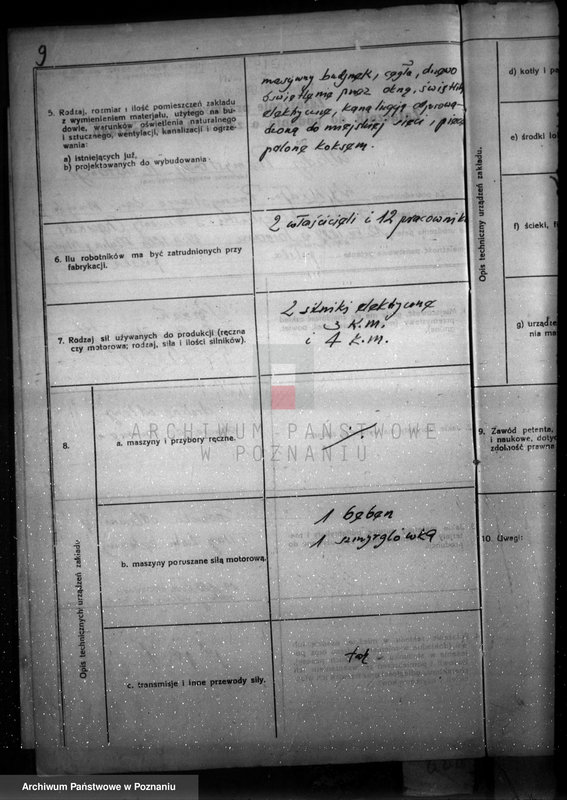 9
5. Rodzaj, rozmiar i ilość pomieszczeń zakładu
z wymienieniem materjału, użytego na bu-
dowie, warunków oświetlenia naturalnego
i sztucznego, wentylacji, kanalizacji i ogrze-
wania:
a) istniejących już,
b) projektowanych do wybudowania
masywny budynek, cegła, drzewo
oświetlane przez okna, światło
elektryczne, kanalizacja odprowa-
dzona do miejskiej sieci,
palone koksem.
6. Ilu robotników ma być zatrudnionych przy
fabrykacji.
2 właścicieli i 12 pracownik
7. Rodzaj sił używanych do produkcji (ręczna
czy motorowa; rodzaj, siła i ilości silników).
2 silniki elektryczne
3 k.m.
i 4 k.m.
8.
Opis technicznych urządzeń zakładu.
a. maszyny i przybory ręczne.
b. maszyny poruszane siłą motorową.
1 bęben
1 szmyrglówka
c. transmisje i inne przewody siły.
tak
Opis techniczny urządzeń zakładu.
d) kotły i pa
e) środki lo
f) ścieki, fi
g) urządze
nia ma
9. Zawód petenta,
i naukowe, dotyc
zdolność prawna
10. Uwagi:
ARCHIWUM PAŃSTWOWE
W POZNANIU
Archiwum Państwowe w Poznaniu